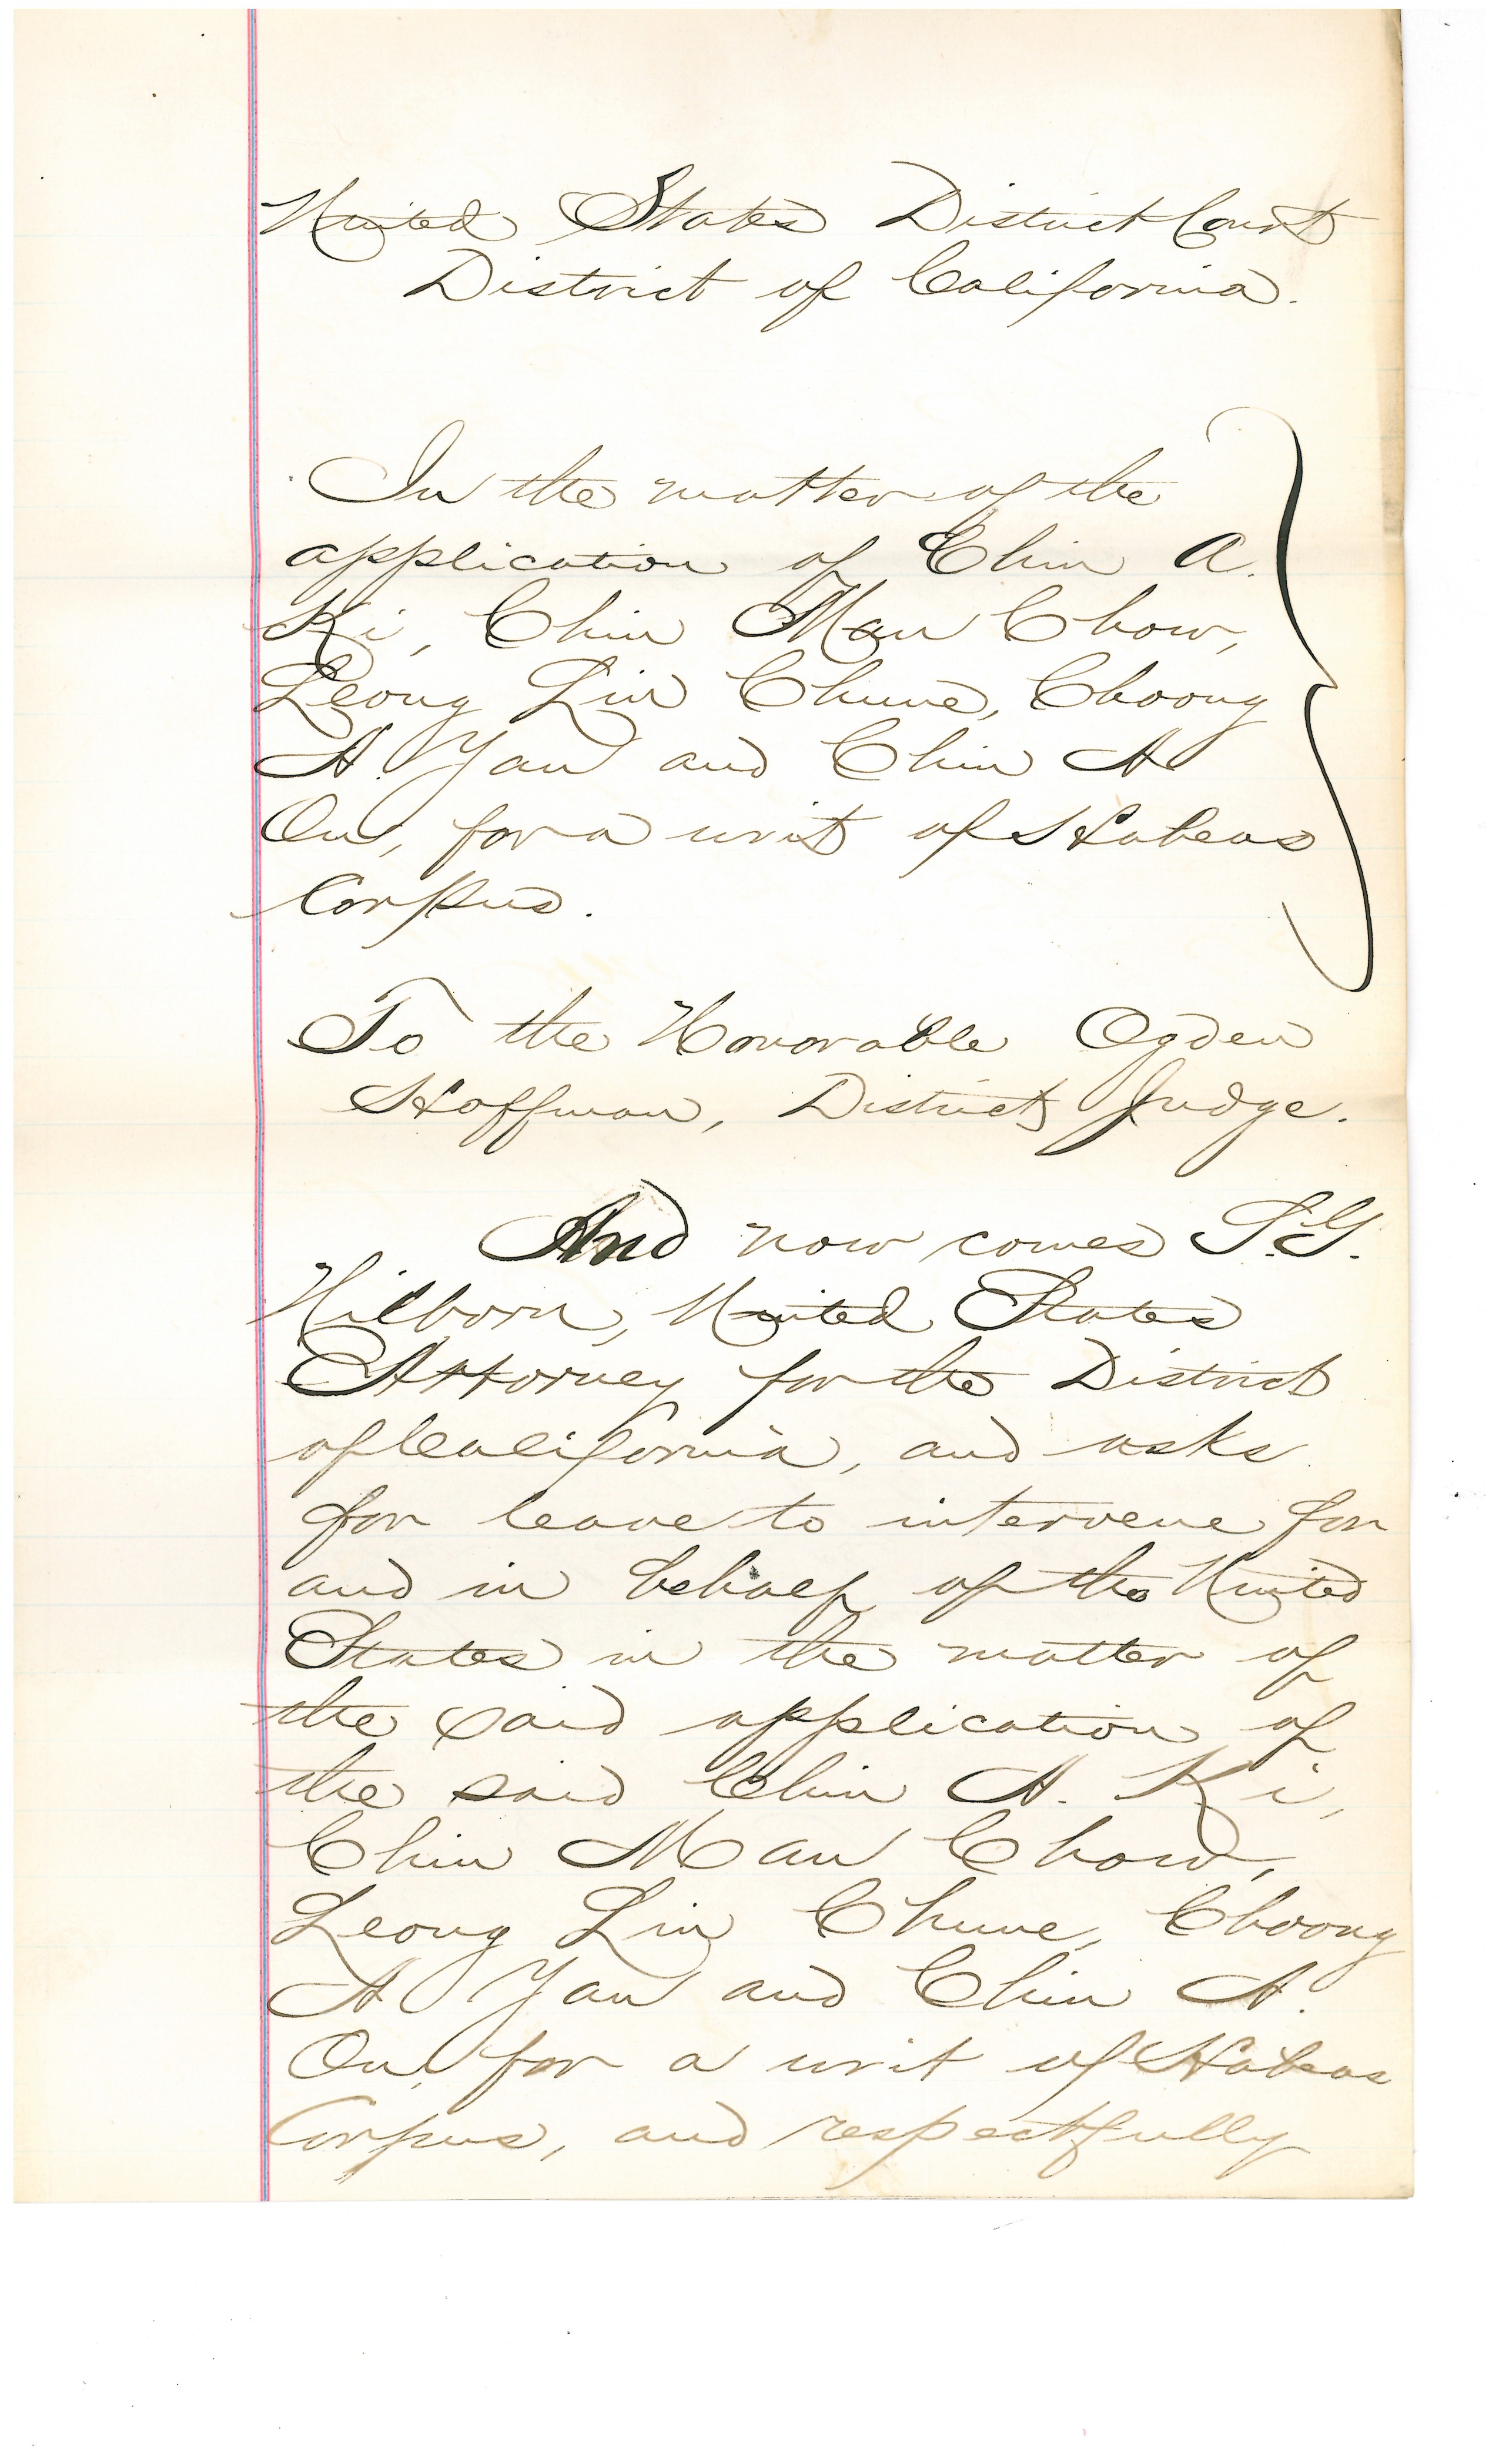 United States District Court
District of California.
In the matter of the
application of Chin A.
Ki, Chin Man Chow,
Leong Lin Chune, Choong
A. Yan and Chin A
On, for a writ of Habeas
Corpus.
To the Honorable Ogden
Hoffman, District Judge.
And now comes S.G.
Hilborn, United States
Attorney for the District
of California, and asks
for leave to intervene for
and in behalf of the United
States in the matter of
the said application of
the said Chin A. Ki,
Chin Man Chow,
Leong Lin Chune, Choong
A Yan and Chin A.
On, for a writ of Habeas
Corpus, and respectfully